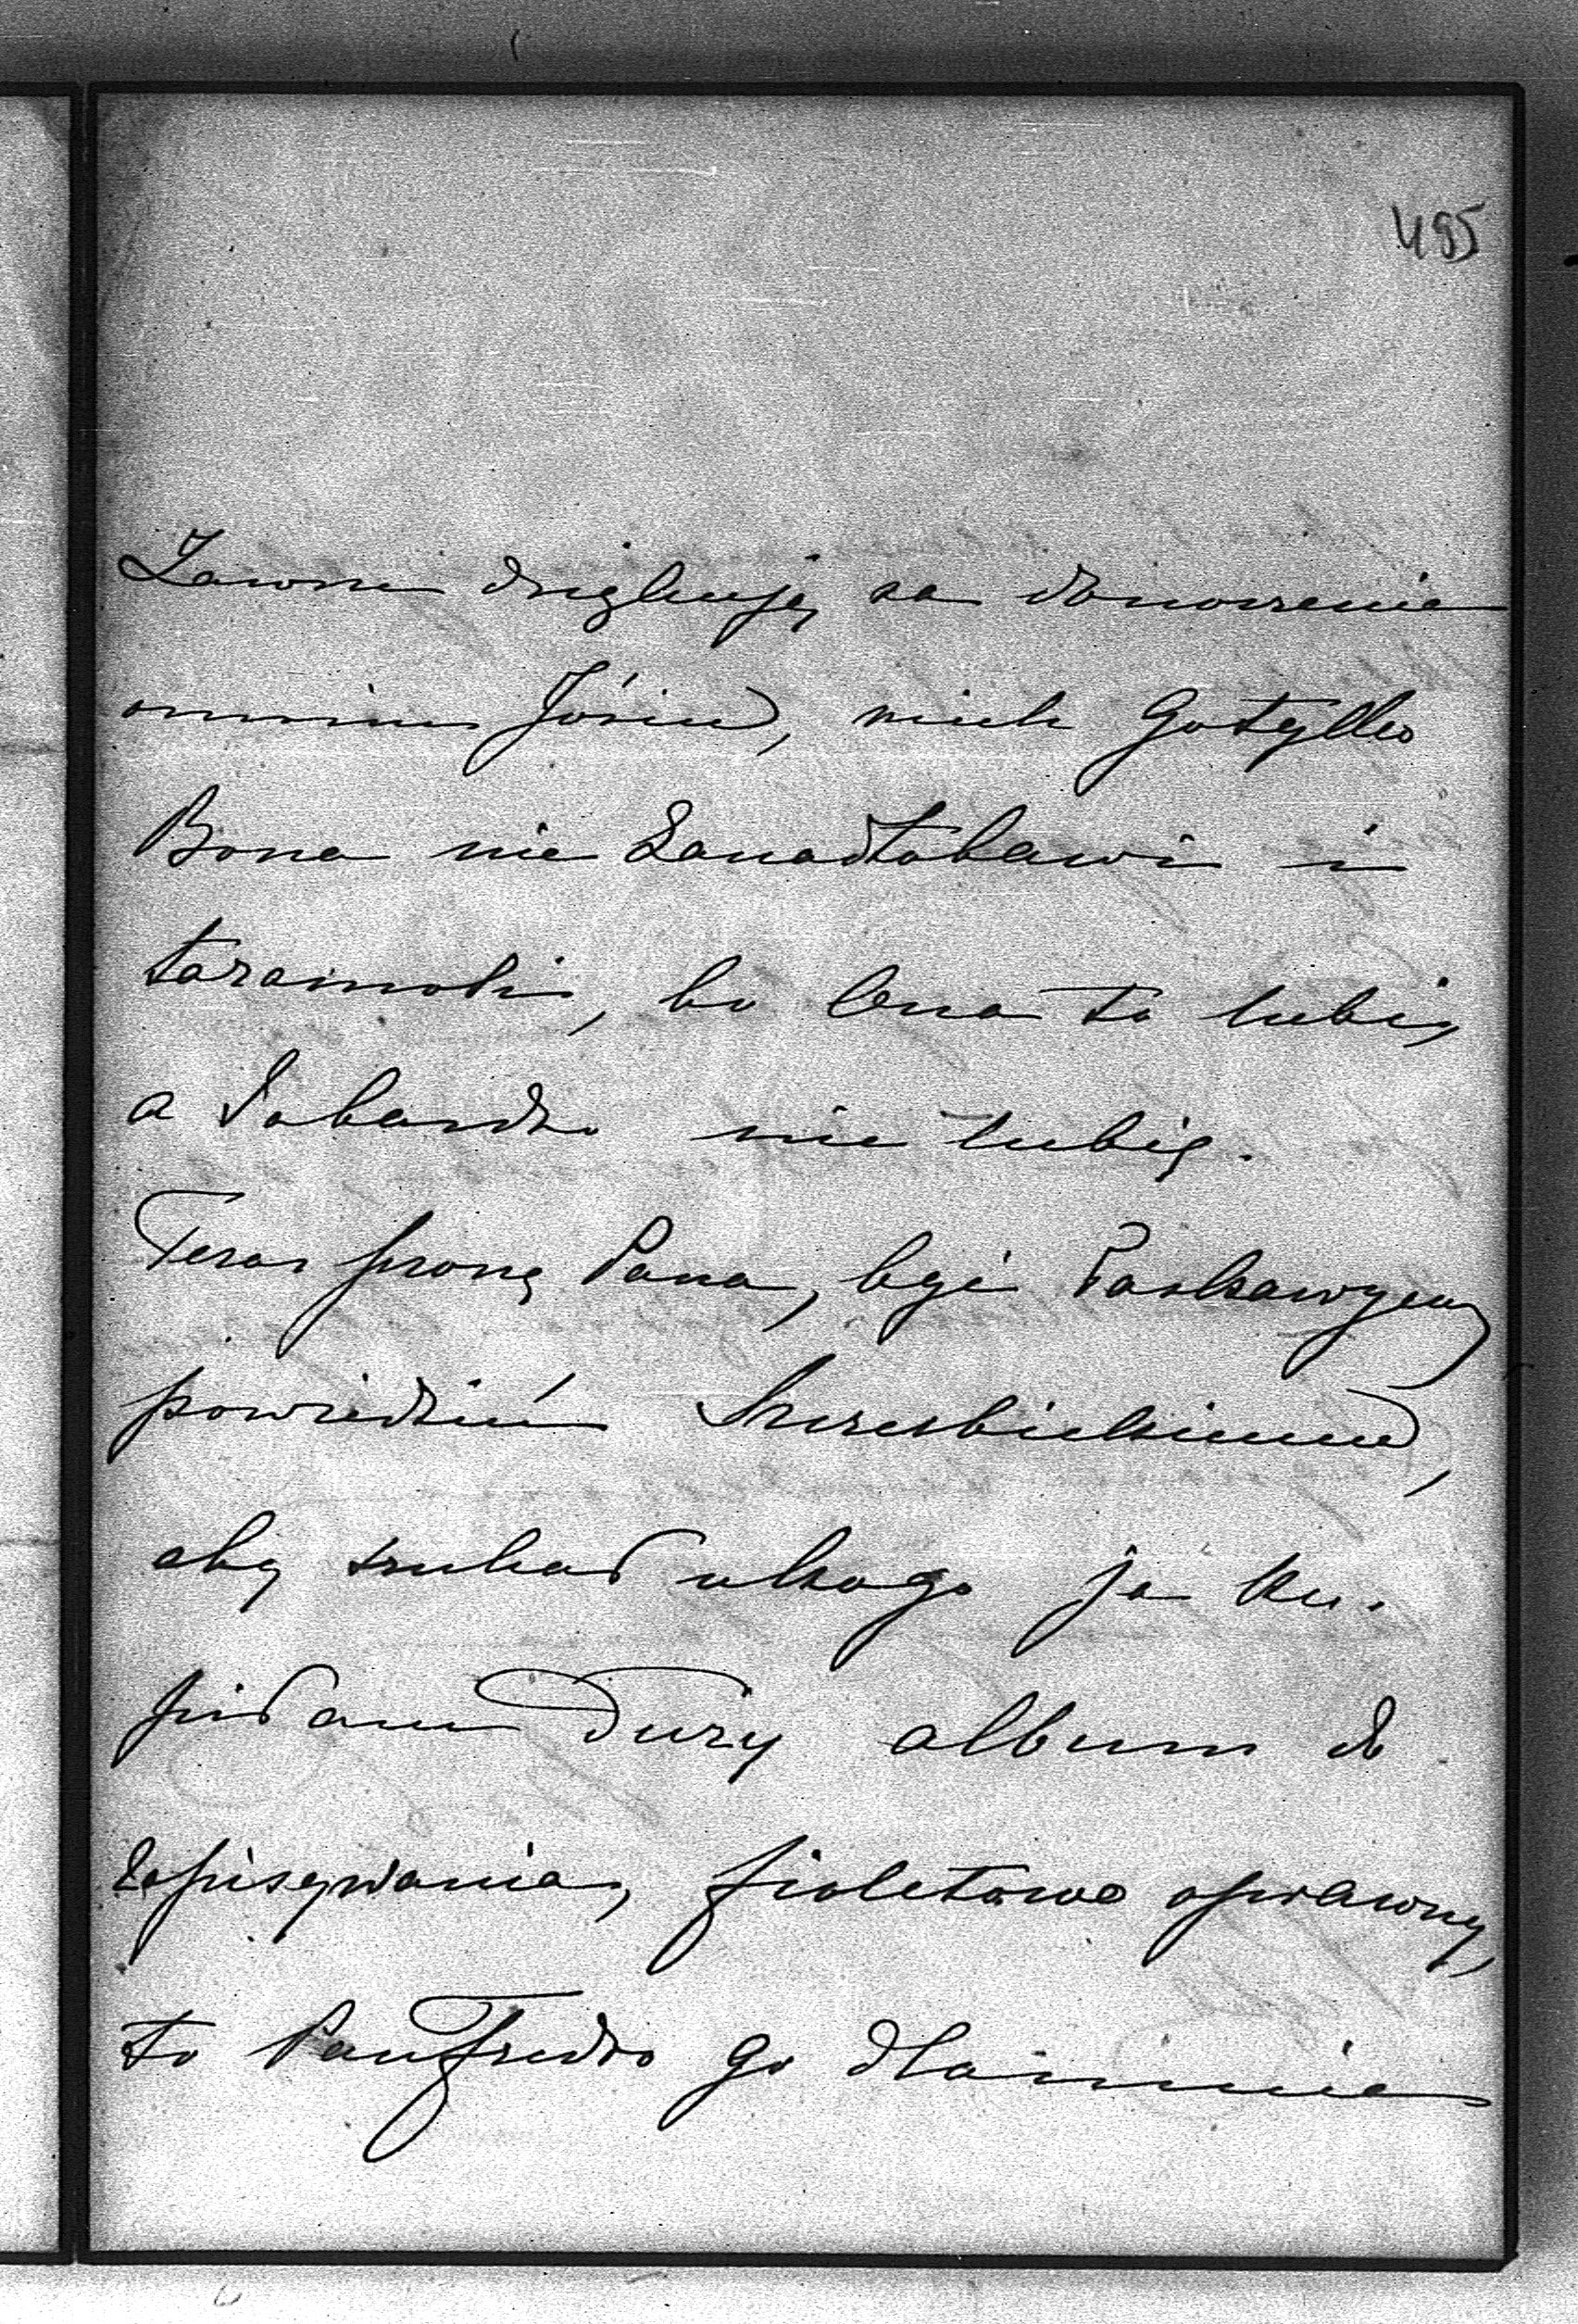 485
Zawsze dziękuję za donoszenie
o moim Józiu, niech go tylko
Bona nie zanadto bawi i
taramosi, bo Ona to lubi,
a ja bardzo nie lubię.
Teraz proszę Pana, być łaskawym
powiedzieć
aby szukał u kogo ja ku-
piłam duży album do
zapisywania, fioletowo oprawny,
to Pan Fredro go dla mnie